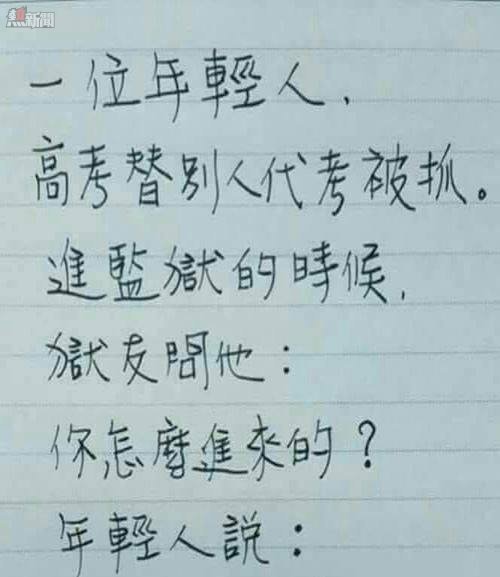 新聞
一位年輕人，
高考替別人代考被抓。
進監獄的時候，
獄友問他：
你怎麼進來的？
年輕人說：